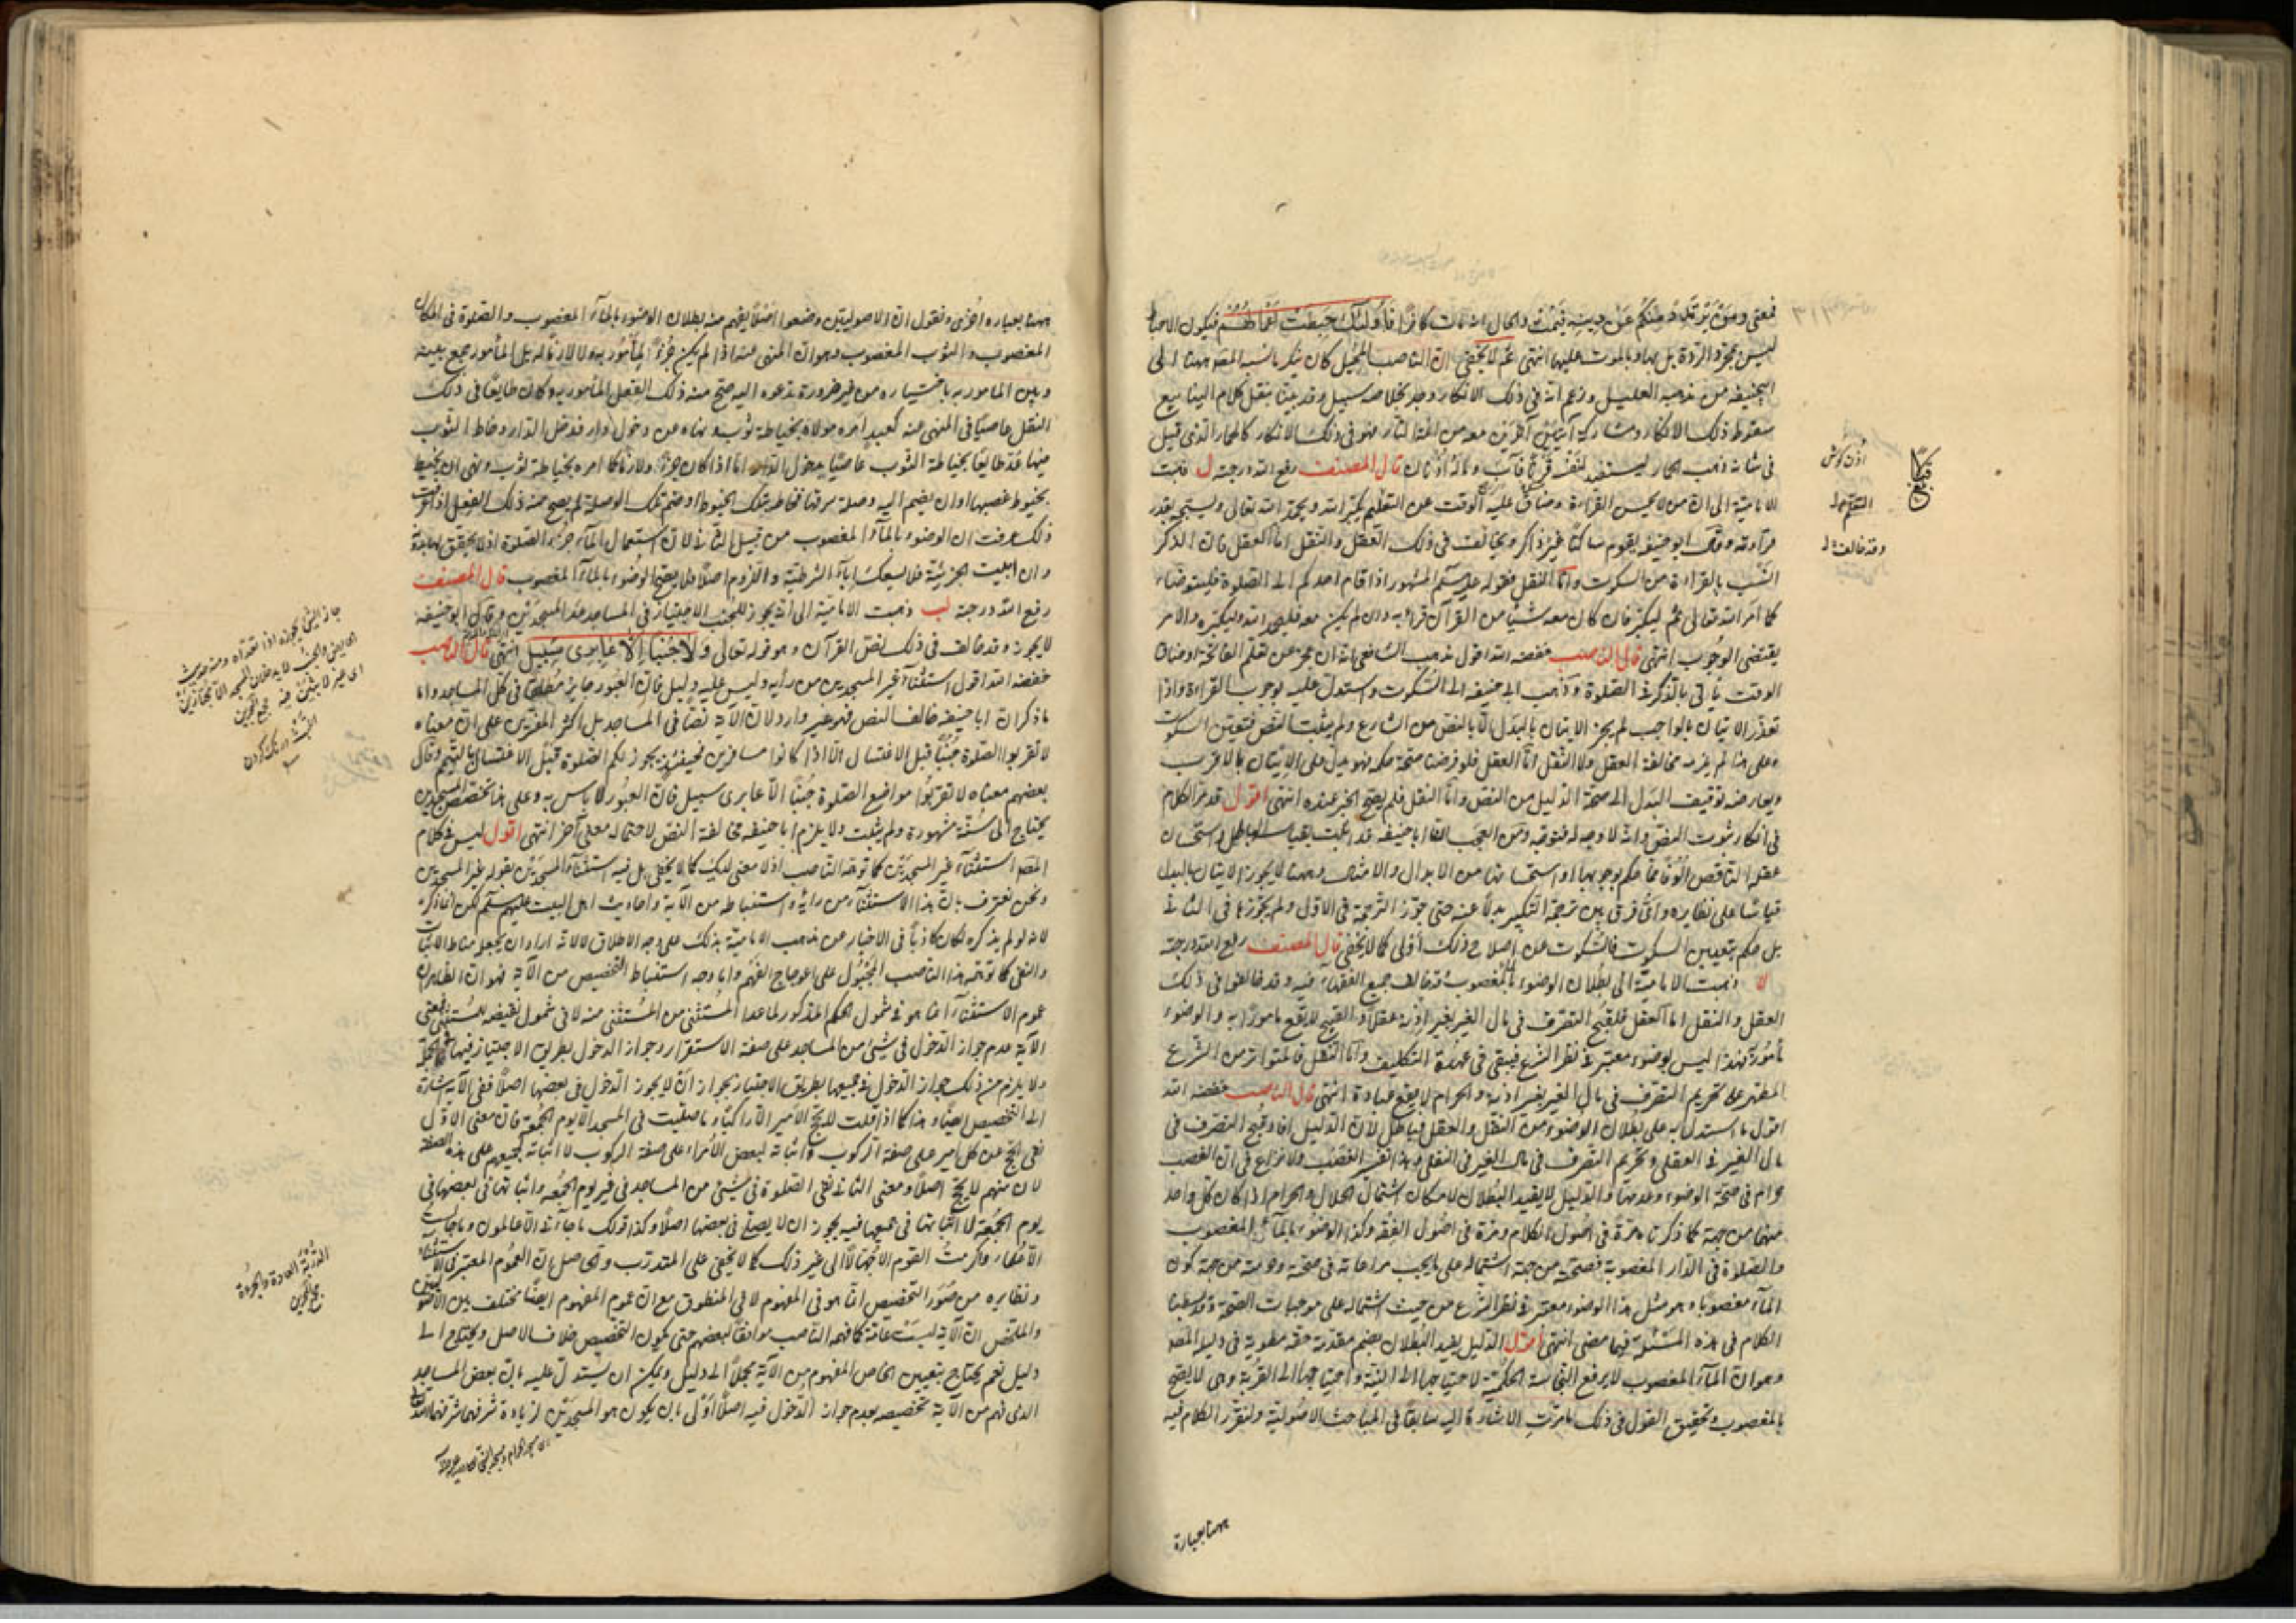 فمعنى ومن يرتدد منكم عن دينه فيمت والحال انه مات كافرا فأولئك حبطت اعمالهم فيكون الاحباط
ليس بمجرد الردة بل بها وبالموت عليها انتهى ثم لا يخفى ان الناصب المحيل كان ينكر ما نسبه المصنف ههنا الى
ابيحنيفه من مذهبه العليل وزعم انه في ذلك الانكار وجد لخلاصه سبيل وقد بينا بنقل كلام الينابيع
سقوط ذلك الانكار ومشاركة آخرين معه من
في شانه ذهب الحمار ليستفيد لنفسه قرنا فآب وماله اذنان قال المصنف رفع الله درجته ل ذهبت
الامامية الى ان من لا يحسن القراءة وضاق عليه الوقت عن التعلم يكبر الله ويحمد الله تعالى ويسبح بقدر
قراءته وقال ابو حنيفه يقوم ساكتا غير ذاكر ويخالف في ذلك العقل والنقل اما العقل فان الذكر
انسب بالقراءة من السكوت واما النقل فقوله عليه السلم المشهور اذا قام احدكم الى الصلوة فليتوضأ
كما امر الله تعالى ثم ليكبر فان كان معه شيئا من القرآن قرأ به وان لم يكن معه فليحمد الله وليكبره والامر
يقتضى الوجوب انتهى قال الناصب خفضه الله اقول مذهب الشافعي انه ان عجز عن تعلم الفاتحة او ضاق
الوقت ياتي بالذكر في الصلوة وذهب ابي حنيفه الى السكوت واستدل عليه بوجوب القراءة واذا
تعذر الاتيان بالواجب لم يجز الاتيان بالبدل الا بالنص من الشارع ولم يثبت النص فتعين السكوت
وعلى هذا لم يلزمه مخالفة العقل ولا النقل اما العقل فلو فرضنا صحة حكمه فهو يدل على الاتيان بالاقرب
ويعارضه توقيف البدل الى صحة الدليل من النص واما النقل فلم يصح الخبر عنده انتهى اقول قد مر الكلام
في انكار ثبوت النص وانه لا وجه له ومن العجب ان ابا حنيفه قد اثبت بقياسه الباطل واستحسان
عقله الناقص الوفا مما حكم بوجوبها او استحبابها من الابدال والامثال وههنا لا يجوز الاتيان بالبدل
قياسا على نظايره واى فرق بين ترجمة التكبير بدلا عنه حتى جوز الترجمة في الاول ولم يجوزها في الثاني
بل حكم بتعيين السكوت فالسكوت عن اصلاح ذلك اولى كما لا يخفى قال المصنف رفع الله درجته
لا ذهبت الامامية الى بطلان الوضوء بالماء المغصوب وقد خالف جميع الفقهاء فيه وقد خالفوا في ذلك
العقل والنقل اما العقل فلقبح التصرف في مال الغير بغير اذنه عقلا والقبيح لا يقع مامورا به والوضوء
مأمور به فهذا ليس بوضوء معتبر في نظر الشرع فيبقى في عهدة التكليف واما النقل فالمتواتر من الشرع
المطهر على تحريم التصرف في مال الغير بغير اذنه والحرام لا يقع عبادة انتهى قال الناصب خفضه الله
اقول ما استدل به على بطلان الوضوء من النقل والعقل فباطل لان الدليل افاد قبح التصرف في
مال الغير في العقل وتحريم التصرف في مال الغير في النقل وهذا تفسير الغصب ولا نزاع في ان الغصب
حرام في صحة الوضوء وعدمها والدليل لا يفيد البطلان لامكان اشتمال الحلال والحرام اذا كان كل واحد
منهما من جهة كما ذكرنا مرة في اصول الكلام ومرة في اصول الفقه وكذا الوضوء بالماء المغصوب
والصلوة في الدار المغصوبة فصحته من جهة اشتماله على ما يجب مراعاته في صحته وحرمته من جهة كون
الماء مغصوبا وهو مثل هذا الوضوء معتبر في نظر الشرع من حيث اشتماله على موجبات الصحة وقد سبقنا
الكلام في هذه المسئلة فيما مضى انتهى اقول الدليل يفيد البطلان بضم مقدمة حقة مطوية في دليل المصنف
وهو ان الماء المغصوب لا يرفع النجاسة الحكمية لاحتياجها الى النية واحتياجها الى القربة وهى لا يصح
بالمغصوب وتحقيق القول في ذلك ما مرت الاشارة اليه سابقا في المباحث الاصولية ولنقرر الكلام فيه
ههنا بعبارة
اذن كوش
التعلم
وقد خالف
ههنا بعبارة اخرى ونقول ان الاصوليين وضعوا اصلا يفهم منه بطلان الوضوء بالماء المغصوب والصلوة في المكان
المغصوب والثوب المغصوب وهو ان المنهى عنه اذا لم يكن جزءا لمأمور به ولا لازما له بل المأمور جمع بينه
وبين المامور به باختياره من غير ضرورة تدعوه اليه صح منه ذلك الفعل المأمور به وكان طايعا في ذلك
الفعل عاصيا في المنهى عنه كعبد امره مولاه بخياطة ثوب ونهاه من دخول دار فدخل الدار وخاط الثوب
فيها عد طايعا بخياطة الثوب عاصيا بدخول الدار اما اذا كان جزءا ولازما كما امره بخياطة ثوب ونهى ان يخيط
بخيوط غصبها او ان يضم اليه وصلة سرقها فخاط بتلك الخيوط او ضم تلك الوصلة لم يصح منه ذلك الفعل اذا عرفت
ذلك عرفت ان الوضوء بالماء المغصوب من قبيل الثاني لان استعمال الماء جزء الصلوة اذ لا يتحقق بدونه
وان ابيت الجزئية فلا يسعك اباء الشرطية واللزوم اصلا فلا يصح الوضوء بالماء المغصوب قال المصنف
رفع الله درجته لب ذهبت الامامية الى انه يجوز للجنب الاجتياز في المساجد عدا المسجدين وقال ابو حنيفه
لا يجوز وقد خالف في ذلك نص القرآن وهو قوله تعالى ولا جنبا الا عابرى سبيل انتهى قال الناصب
خفضه الله اقول استثناء غير المسجدين من رأيه وليس عليه دليل فان العبور جايز مطلقا في كل المساجد واما
ما ذكر ان ابا حنيفه خالف النص فهو غير وارد لان الآية نصا في المساجد بل اكثر المفسرين على ان معناه
لا تقربوا الصلوة جنبا قبل الاغتسال الا اذا كانوا مسافرين فحينئذ يجوز لكم الصلوة قبل الاغتسال بالتيمم وقال
بعضهم معناه لا تقربوا مواضع الصلوة جنبا الا عابرى سبيل فان العبور لا باس به وعلى هذا تخصيص المسجدين
يحتاج الى سنة مشهورة ولم يثبت ولا يلزم ابا حنيفه مخالفة النص لاحتماله معنى آخر انتهى اقول ليس في كلام
المصنف استثناء غير المسجدين كما توهمه الناصب اذ لا معنى لذلك كما لا يخفى بل فيه استثناء المسجدين بقوله غير المسجدين
ونحن نعترف بان هذا الاستثناء من رأيه واستنباطه من الآية واحاديث اهل البيت عليهم السلم لكن انما ذكره
لانه لو لم يذكره لكان كاذبا في الاخبار عن مذهب الامامية بذلك على وجه الاطلاق لا لانه اراد ان يجعل مناط الاثبات
والنفى كما توهمه هذا الناصب المجبول على اعوجاج الفهم واما وجه استنباط التخصيص من الآية فهو ان الظاهر ان
عموم الاستثناء انما هو في شمول الحكم المذكور لما عدا المستثنى من المستثنى منه لا في شمول نقيضه للمستثنى فمعنى
الآية عدم جواز الدخول في شيئ من المساجد على صفة الاستقرار وجواز الدخول بطريق الاجتياز فيها في الجملة
ولا يلزم من ذلك جواز الدخول في جميعها بطريق الاجتياز بجواز ان لا يجوز الدخول في بعضها اصلا ففى الآية اشارة
الى التخصيص ايضا وهذا كما اذا قلت لا يحج الامير الا راكبا وما صليت في المسجد الا يوم الجمعة فان معنى الاول
نفى الحج عن كل امير على صفة الركوب واثباته لبعض الامراء على صفة الركوب لا اثباته لجميعهم على هذه الصفة
لان منهم لا يحج اصلا ومعنى الثاني نفى الصلوة في شيئ من المساجد في غير يوم الجمعه واثباتها في بعضها في
يوم الجمعة لا اثباتها في جميعها فيه بجواز ان لا يصلى في بعضها اصلا وكذا قولك ما جاءنى الا عالمون وما جاءت
الا وما اكرمت القوم الا جهالا الى غير ذلك كما لا يخفى على المتدرب والحاصل ان العموم المعتبر في الاستثناء
ونظايره من صور التخصيص انما هو في المفهوم لا في المنطوق مع ان عموم المفهوم ايضا مختلف بين الاصوليين
والملخص ان الآية ليست عامة كما فهمه الناصب موافقا لبعضهم حتى يكون التخصيص خلاف الاصل ويحتاج الى
دليل نعم يحتاج بتعيين الخاص المفهوم من الآية مجملا الى دليل ويمكن ان يستدل عليه بان بعض المساجد
الذى فهم من الآية تخصيصه بعدم جواز الدخول فيه اصلا اولى بان يكون هو المسجدين لزيادة شرفهما شرفهما الله تعالى
جاز الشئ يجوزه اذا تعداه ومنه حديث
الحايض والجنب لا يدخلان المسجد الا مجتازين
اى غير لابثين فيه مجمع البحرين
اللبث درنك كردن
مجمع البحرين